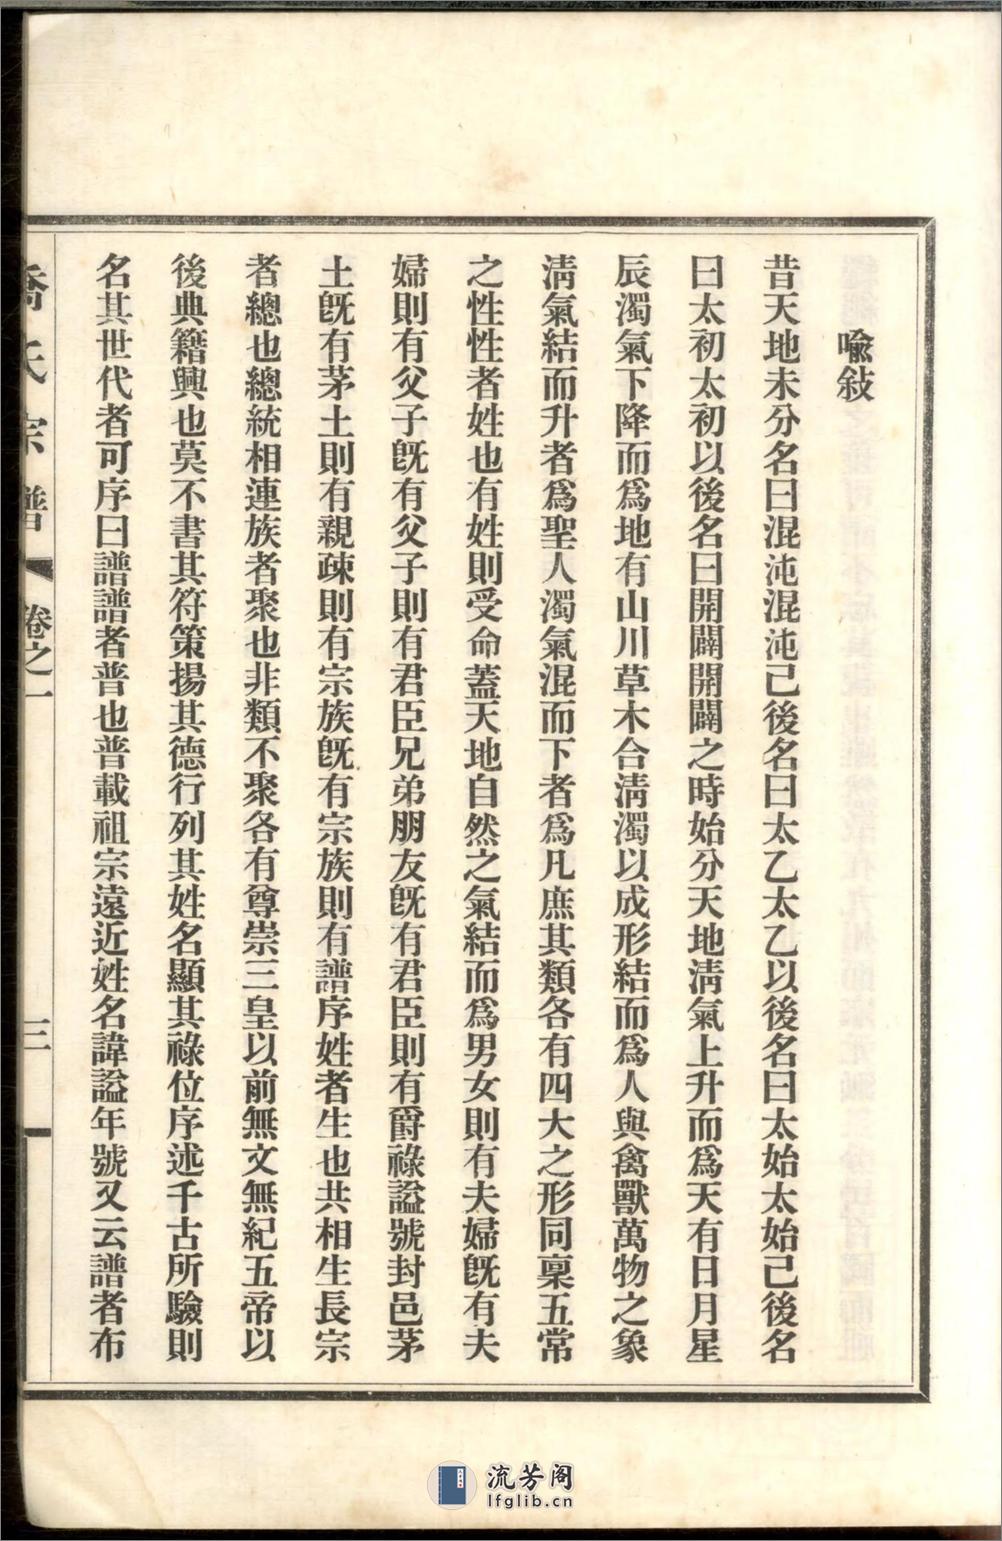 喩敍
昔天地未分名曰混沌混沌己後名曰太乙太乙以後名曰太始太始己後名
曰太初太初以後名曰開闢開闢之時始分天地淸氣上升而爲天有日月星
辰濁氣下降而爲地有山川草木合淸濁以成形結而爲人與禽獸萬物之象
淸氣結而升者爲聖人濁氣混而下者爲凡庶其類各有四大之形同稟五常
之性性者姓也有姓則受命蓋天地自然之氣結而爲男女則有夫婦旣有夫
婦則有父子旣有父子則有君臣兄弟朋友旣有君臣則有爵祿謚號封邑茅
土旣有茅土則有親疎則有宗族旣有宗族則有譜序姓者生也共相生長宗
者總也總統相連族者聚也非類不聚各有尊崇三皇以前無文無紀五帝以
後典籍興也莫不書其符策揚其德行列其姓名顯其祿位序述千古所驗則
名其世代者可序曰譜譜者普也普載祖宗遠近姓名諱謚年號又云譜者布
喬氏宗譜 卷之一 三
流芳阁
lfglib.cn